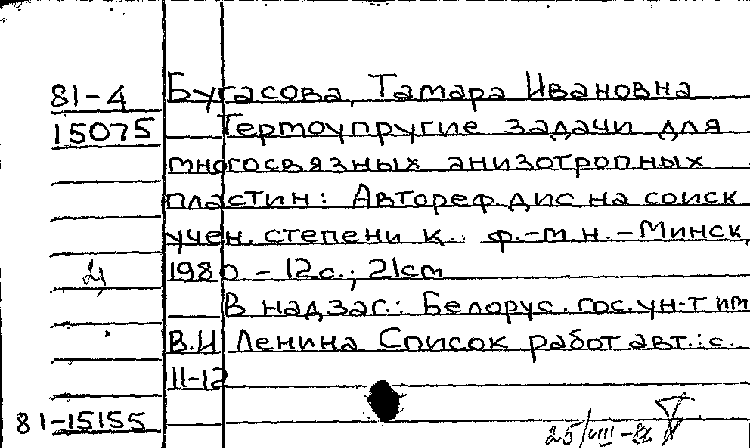 81-4 Бугасова, Тамара Ивановна
15075 Термоупругие задачи для
многосвязных анизотропных
пластин: Автореф. дис на соиск
учен. степени к. ф.-м.н. - Минск,
1980 - 12с.; 21см
В надзаг.: Белорус. гос. ун-т им
В.И Ленина Список работ авт.: с.
11-12
81-15155
25/VIII-86